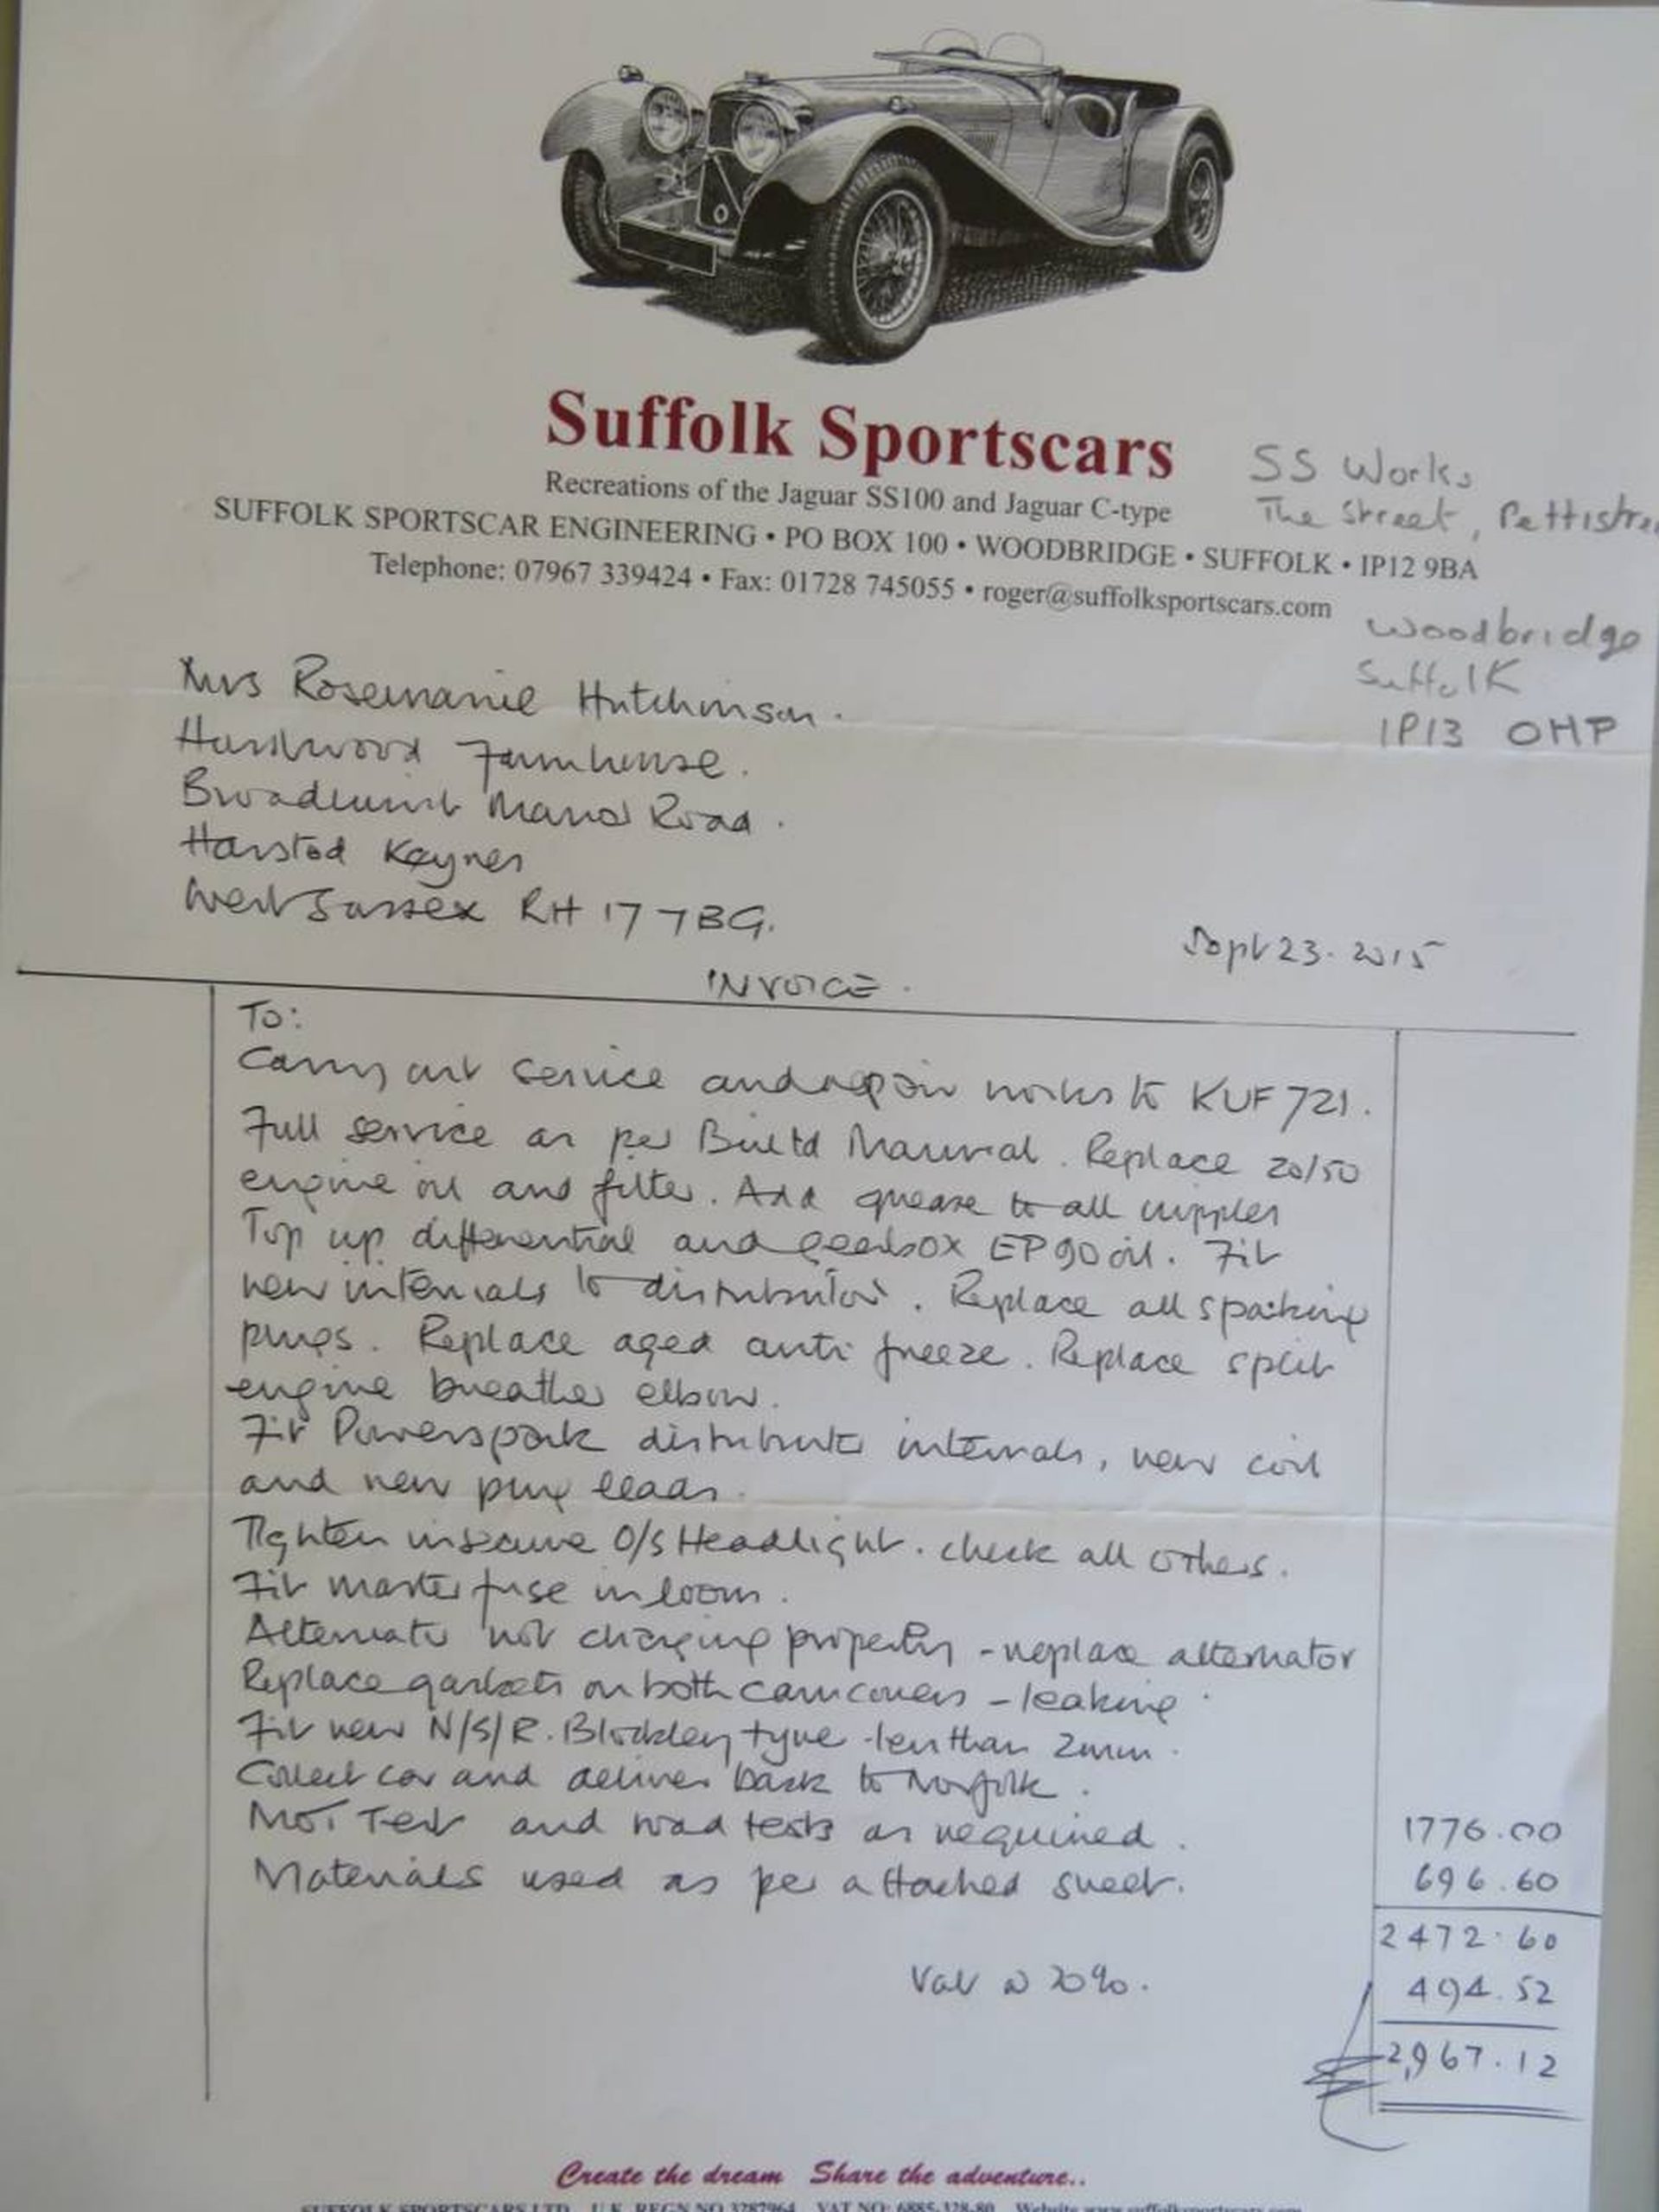 Suffolk Sportscars
Recreations of the Jaguar SS100 and Jaguar C-type
SUFFOLK SPORTSCAR ENGINEERING • PO BOX 100 • WOODBRIDGE • SUFFOLK • IP12 9BA
Telephone: 07967 339424 • Fax: 01728 745055 • roger@suffolksportscars.com
SS Works
The Street,
Woodbridge
Suffolk
IP13 0HP
Mrs Rosemarie Hutchinson.
Farmhouse.
Manor Road.
Horsted Keynes
West Sussex RH17 7BG.
Sept 23. 2015
INVOICE.
To:
Carry out service and repair works to KUF 721.
Full service as per Build Manual. Replace 20/50
engine oil and filter. Add grease to all nipples
Top up differential and gearbox EP90 oil. Fit
new internals to distributor. Replace all sparking
plugs. Replace aged anti freeze. Replace split
engine breather elbow.
Fit Powerspark distributor internals, new coil
and new plug leads.
Tighten insecure O/S Headlight. check all others.
Fit master fuse in loom.
Alternator not charging properly - replace alternator
Replace gaskets on both camcovers - leaking
Fit new N/S/R. Blockley tyre - less than 2mm.
Collect car and deliver back to Norfolk.
MOT Test and road tests as required. 1776.00
Materials used as per attached sheet. 696.60
2472.60
Vat @ 20%. 494.52
2,967.12
Create the dream Share the adventure..
SUFFOLK SPORTSCARS LTD U.K. REGN NO 3287964 VAT NO: 6885-328-80 Website www.suffolksportscars.com